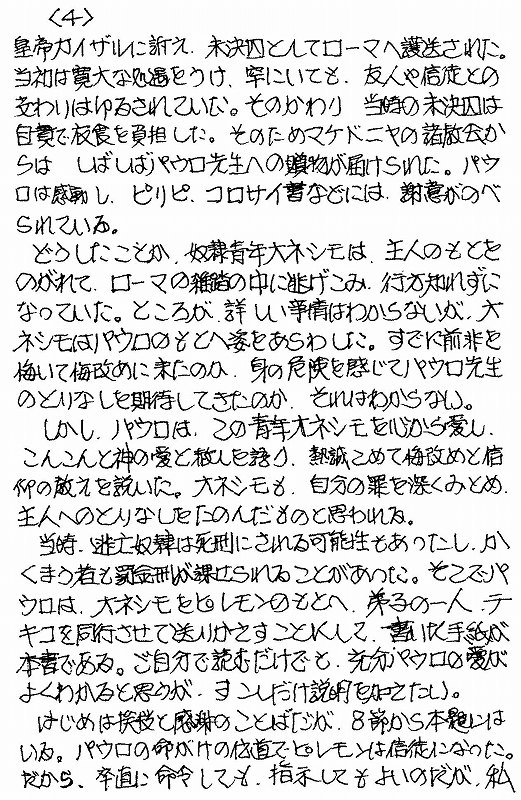 〈4〉
皇帝カイザルに訴え、未決囚としてローマへ護送された。
当初は寛大な処遇をうけ、牢にいても、友人や信徒との
交わりはゆるされていた。そのかわり 当時の未決囚は
自費で衣食を負担した。そのためマケドニヤの諸教会か
らは しばしばパウロ先生への贈物が届けられた。パウ
ロは感動し、ピリピ、コロサイ書などには、謝意がのべ
られている。
どうしたことか、奴隷青年オネシモは、主人のもとを
のがれて、ローマの雑踏の中に逃げこみ、行方知れずに
なっていた。ところが、詳しい事情はわからないが、オ
ネシモはパウロのもとへ姿をあらわした。すでに前非を
悔いて悔改めに来たのか、身の危険を感じてパウロ先生
のとりなしを期待してきたのか、それはわからない。
しかし、パウロは、この青年オネシモを心から愛し、
こんこんと神の愛と救いを語り、熱誠こめて悔改めと信
仰の教えを説いた。オネシモも、自分の罪を深くみとめ、
主人へのとりなしをたのんだものと思われる。
当時、逃亡奴隷は死刑にされる可能性もあったし、か
くまう者も罰金刑が課せられることがあった。そこでパ
ウロは、オネシモをピレモンのもとへ、弟子の一人、テ
キコを同行させて送りかえすことにして、書いた手紙が
本書である。ご自分で読むだけでも、充分パウロの愛が
よくわかると思うが、すこしだけ説明を加えたい。
はじめは挨拶と感謝のことばだが、8節から本題には
いる。パウロの命がけの伝道でピレモンは信徒になった。
だから、率直に命令しても、指示してもよいのだが、私